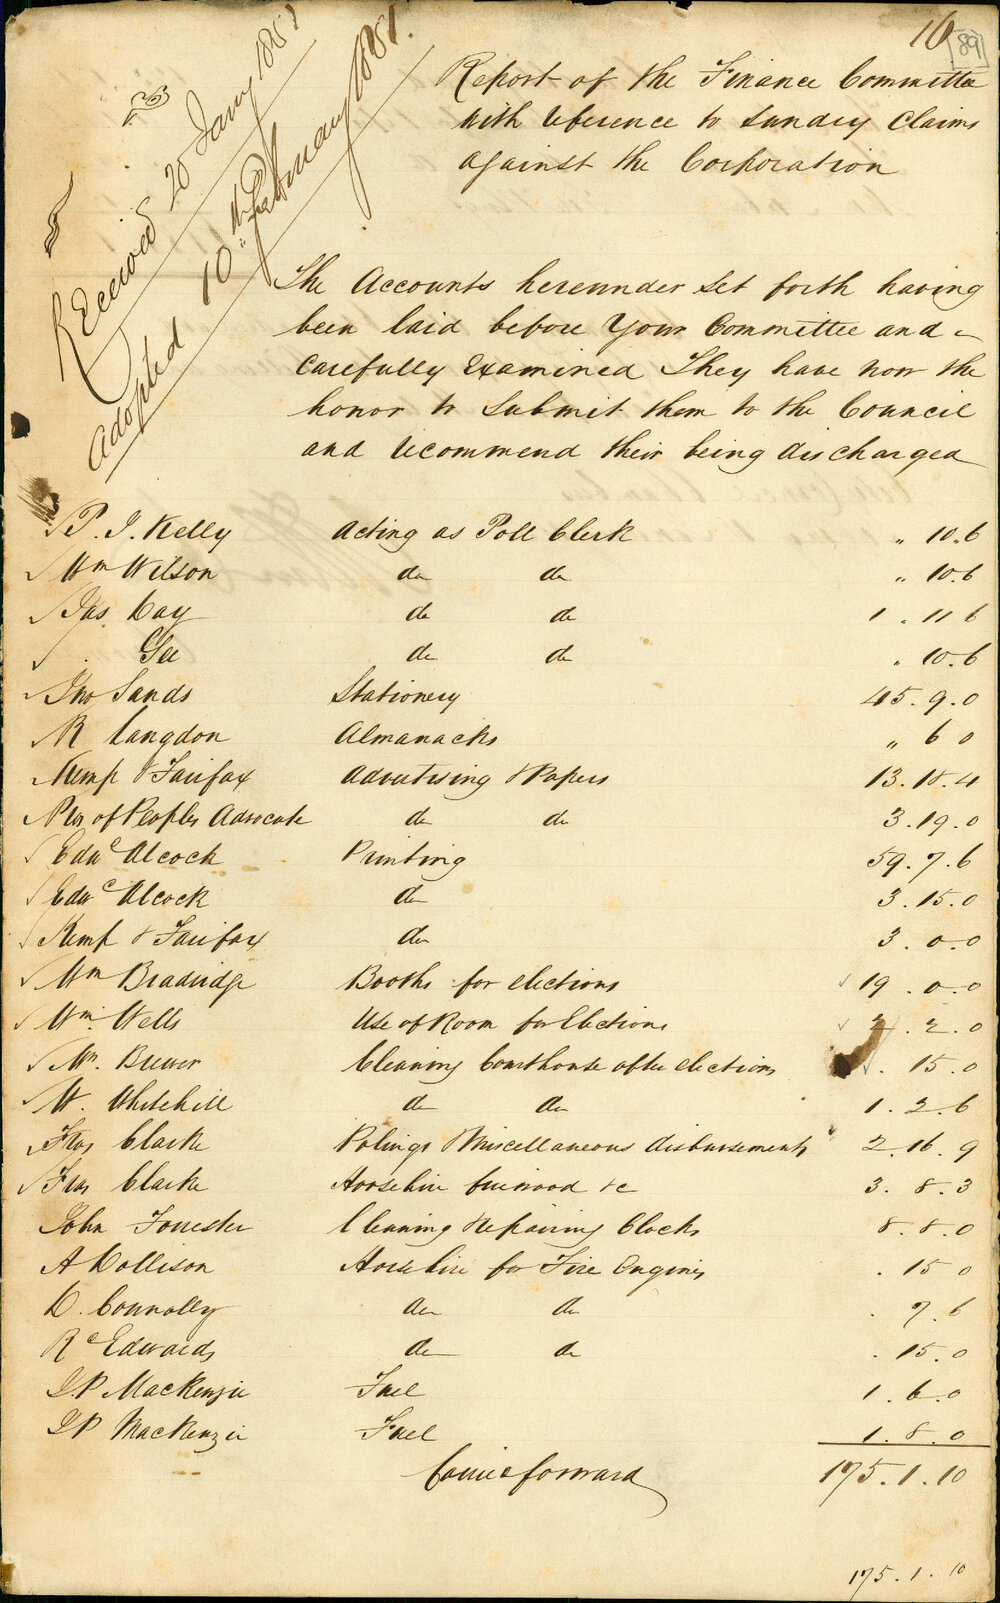 16
[89]
Received 20 Jany 1851
Adopted 10th February 1851.
Report of the Finance Committee
with reference to Sundry Claims
against the Corporation
The Accounts hereunder set forth having
been laid before Your Committee and
Carefully Examined They have now the
honor to Submit them to the Council
and recommend their being discharged
P. J. Kelly Acting as Poll Clerk " 10.6
Wm Wilson do do " 10.6
Jas. Day do do 1 . 11 6
Gee do do " 10.6
Jno Sands Stationery 45.9.0
R Langdon Almanacks " 6 0
Kemp & Fairfax Advertising & Papers 13.18.4
of Peoples Advocate do do 3.19.0
Edwd Alcock Printing 59.7.6
Edwd Alcock do 3.15.0
Kemp & Fairfax do 3.0.0
Wm Bradridge Booths for elections 19.0.0
Wm. Wells Use of Room for Elections 2.2.0
Brewer Cleaning Courthouse after elections . 15.0
W. Whitehill do do 1.2.6
Fras Clarke Polings & Miscellaneous disbursements 2.16.9
Fras Clarke Horsehire firewood &c 3.8.3
John Forrester Cleaning & Repairing Clocks 8.8.0
A Collison Horse hire for Fire Engines . 15 0
D. Connolly do do . 7.6
Rd Edwards do do . 15.0
J.P. MacKenzie Fuel 1.6.0
J P MacKenzie Fuel 1.8.0
Carried forward 175.1.10
175.1.10